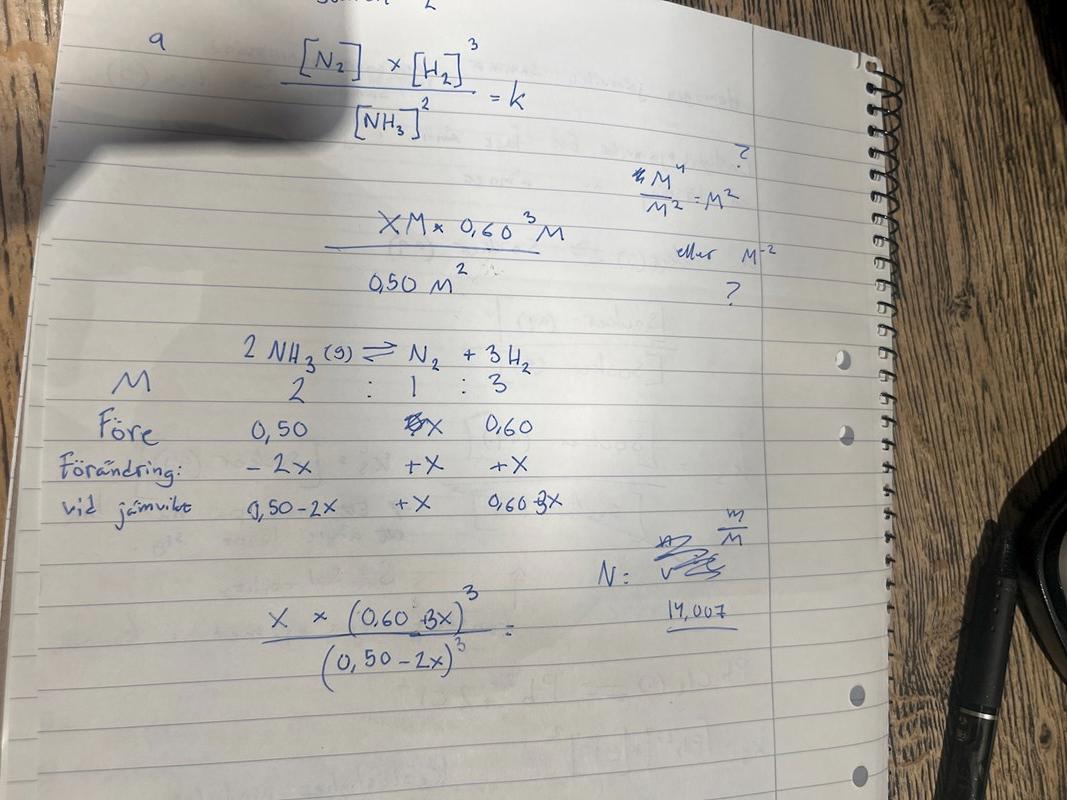 a
[N₂] × [H₂]³
———————— = k
[NH₃]²
?
M⁴
—— = M²
M²
XM × 0,60³ M
————————
0,50 M²
eller M⁻²
?
2 NH₃ (g) ⇌ N₂ + 3H₂
M 2 : 1 : 3
Före 0,50 x 0,60
Förändring: -2x +x +x
vid jämvikt 0,50-2x +x 0,60 3x
m
—
M
N:
14,007
x × (0,60 3x)³
———————— =
(0,50-2x)³